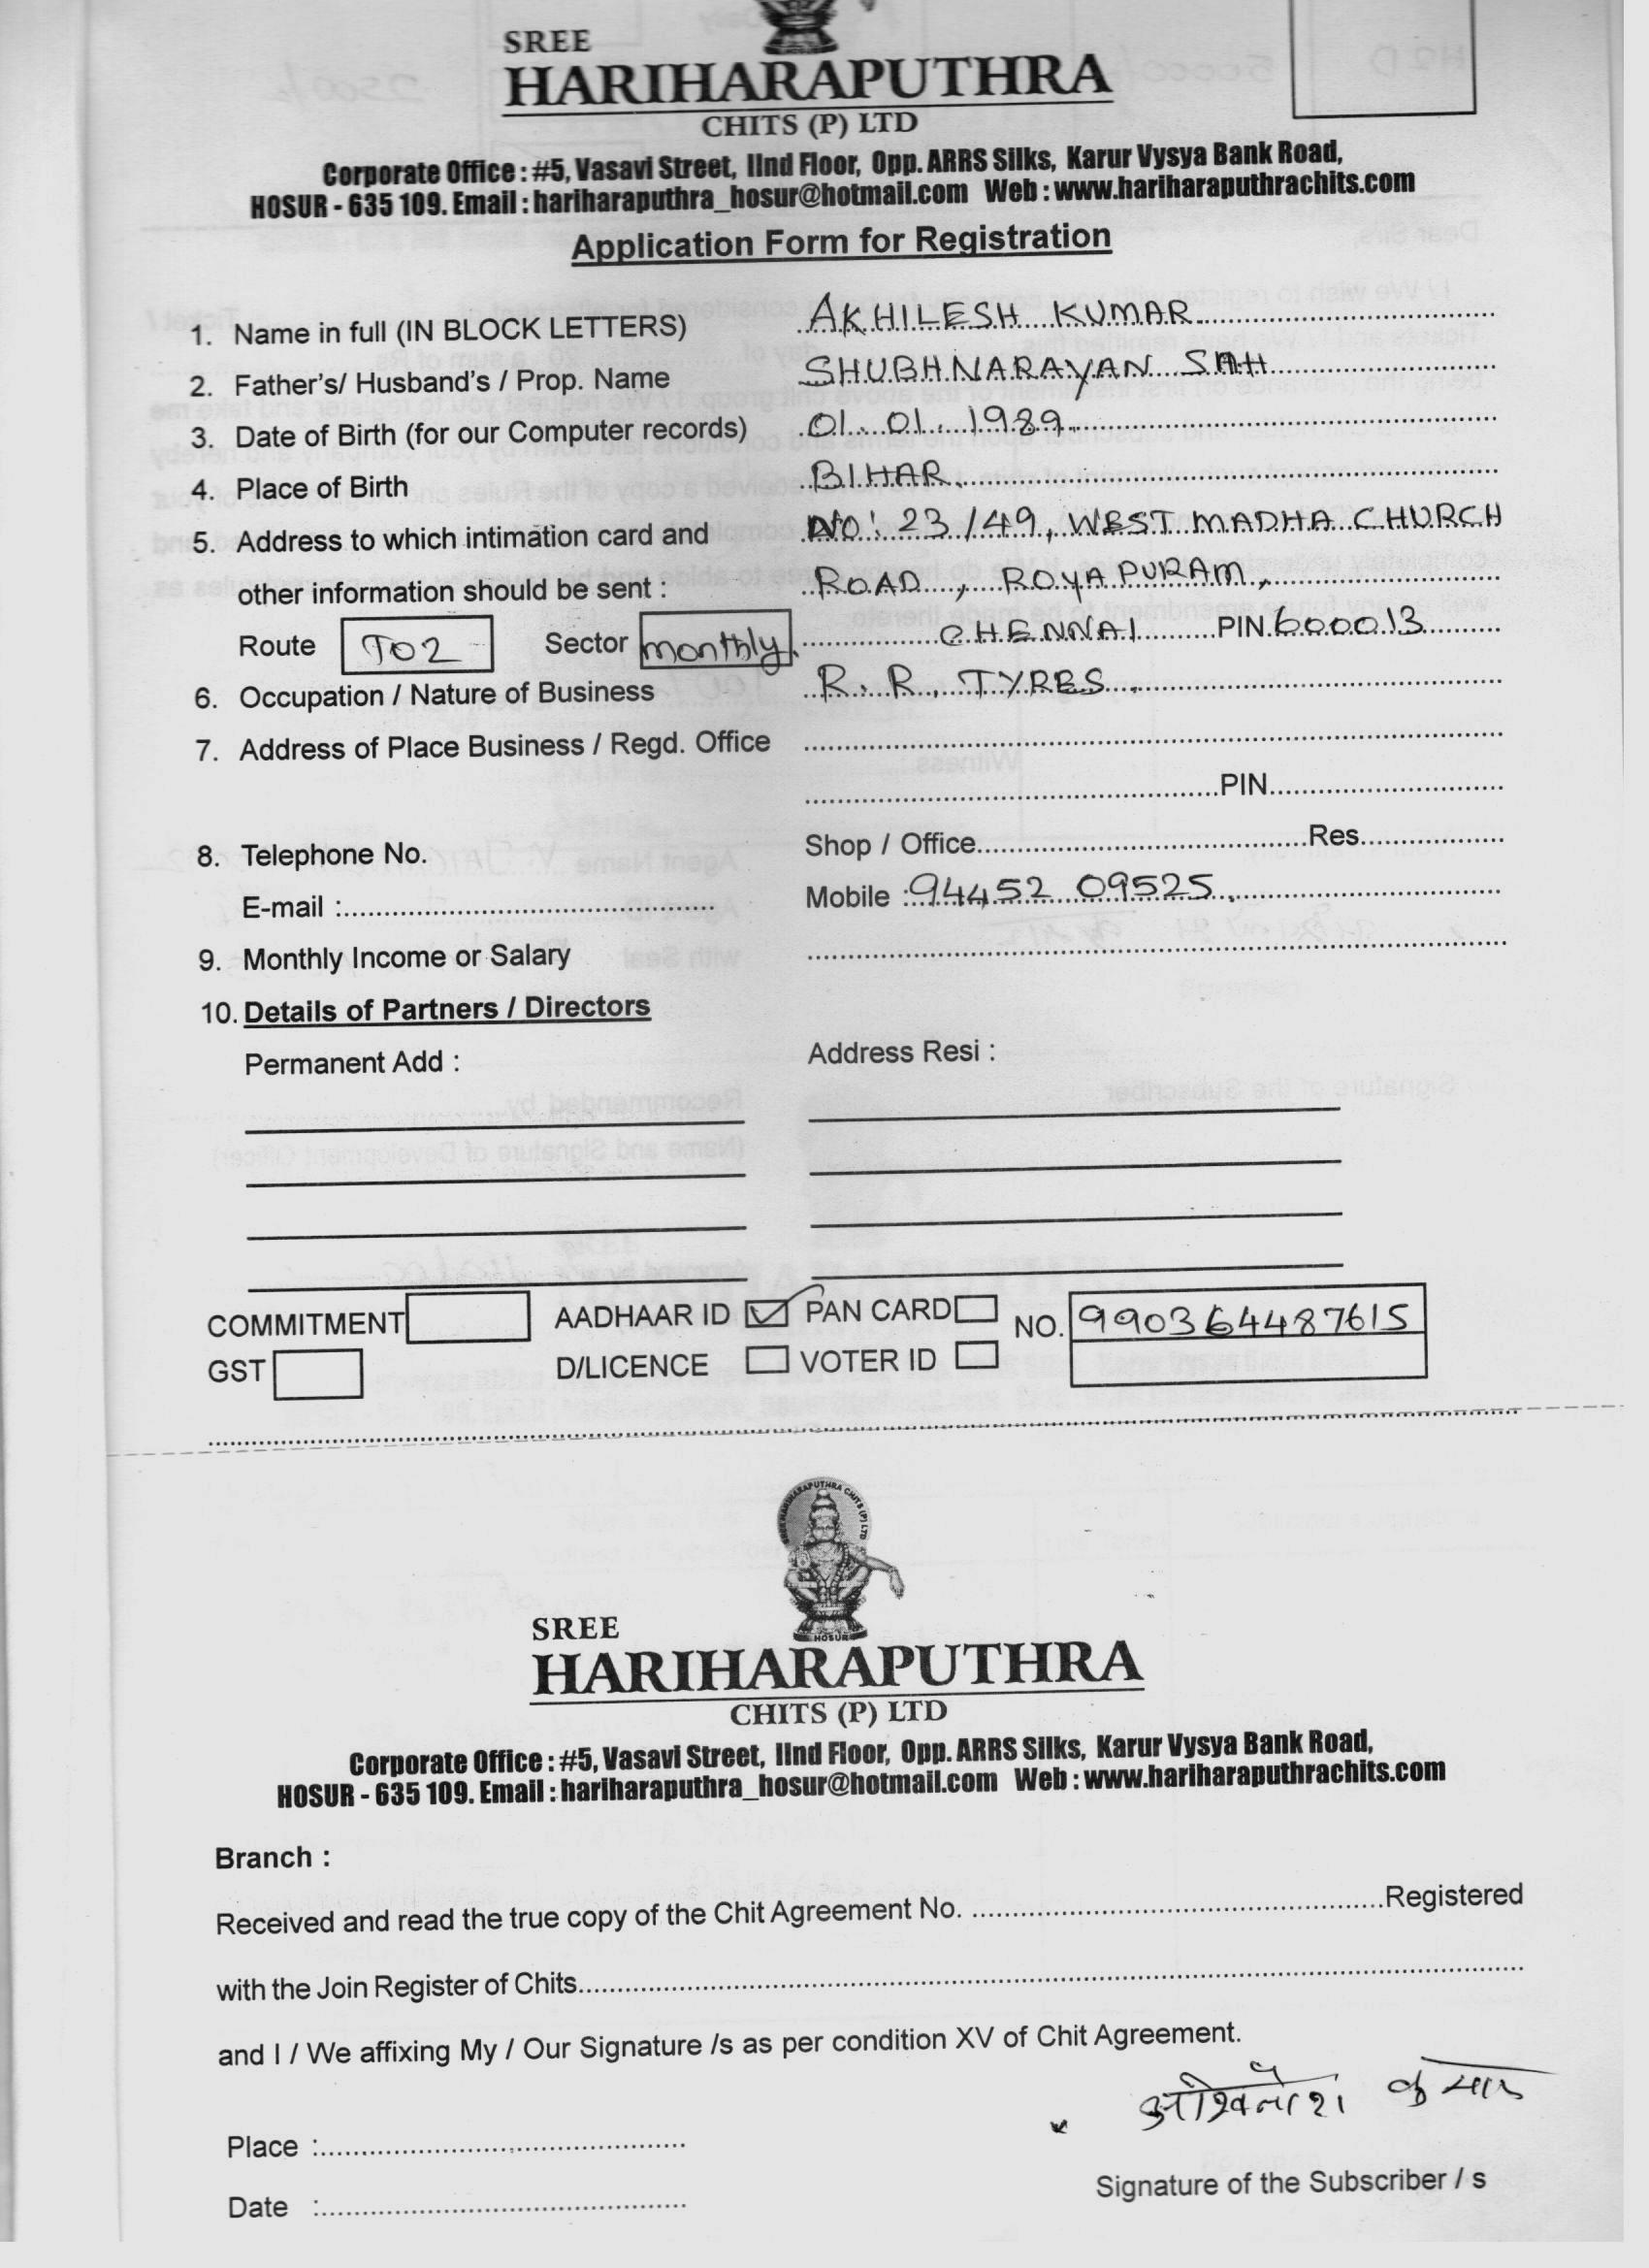 SREE
HARIHARAPUTHRA
CHITS (P) LTD
Corporate Office : #5, Vasavi Street, IInd Floor, Opp. ARRS Silks, Karur Vysya Bank Road,
HOSUR - 635 109. Email : hariharaputhra_hosur@hotmail.com Web : www.hariharaputhrachits.com
Application Form for Registration
1. Name in full (IN BLOCK LETTERS) AKHILESH KUMAR
2. Father's/ Husband's / Prop. Name SHUBHNARAYAN SAH
3. Date of Birth (for our Computer records) 01. 01. 1989
4. Place of Birth BIHAR
5. Address to which intimation card and NO: 23/49, WEST MADHA CHURCH
other information should be sent : ROAD, ROYAPURAM,
Route T02 Sector monthly CHENNAI PIN 600013
6. Occupation / Nature of Business R. R. TYRES
7. Address of Place Business / Regd. Office
PIN
8. Telephone No. Shop / Office Res.
E-mail : Mobile : 94452 09525
9. Monthly Income or Salary
10. Details of Partners / Directors
Permanent Add : Address Resi :
COMMITMENT AADHAAR ID PAN CARD NO. 990364487615
GST D/LICENCE VOTER ID
SREE HARIHARAPUTHRA CHITS (P) LTD
HOSUR
SREE
HARIHARAPUTHRA
CHITS (P) LTD
Corporate Office : #5, Vasavi Street, IInd Floor, Opp. ARRS Silks, Karur Vysya Bank Road,
HOSUR - 635 109. Email : hariharaputhra_hosur@hotmail.com Web : www.hariharaputhrachits.com
Branch :
Received and read the true copy of the Chit Agreement No. Registered
with the Join Register of Chits
and I / We affixing My / Our Signature /s as per condition XV of Chit Agreement.
अखिलेश कुमार
Place :
Date :
Signature of the Subscriber / s